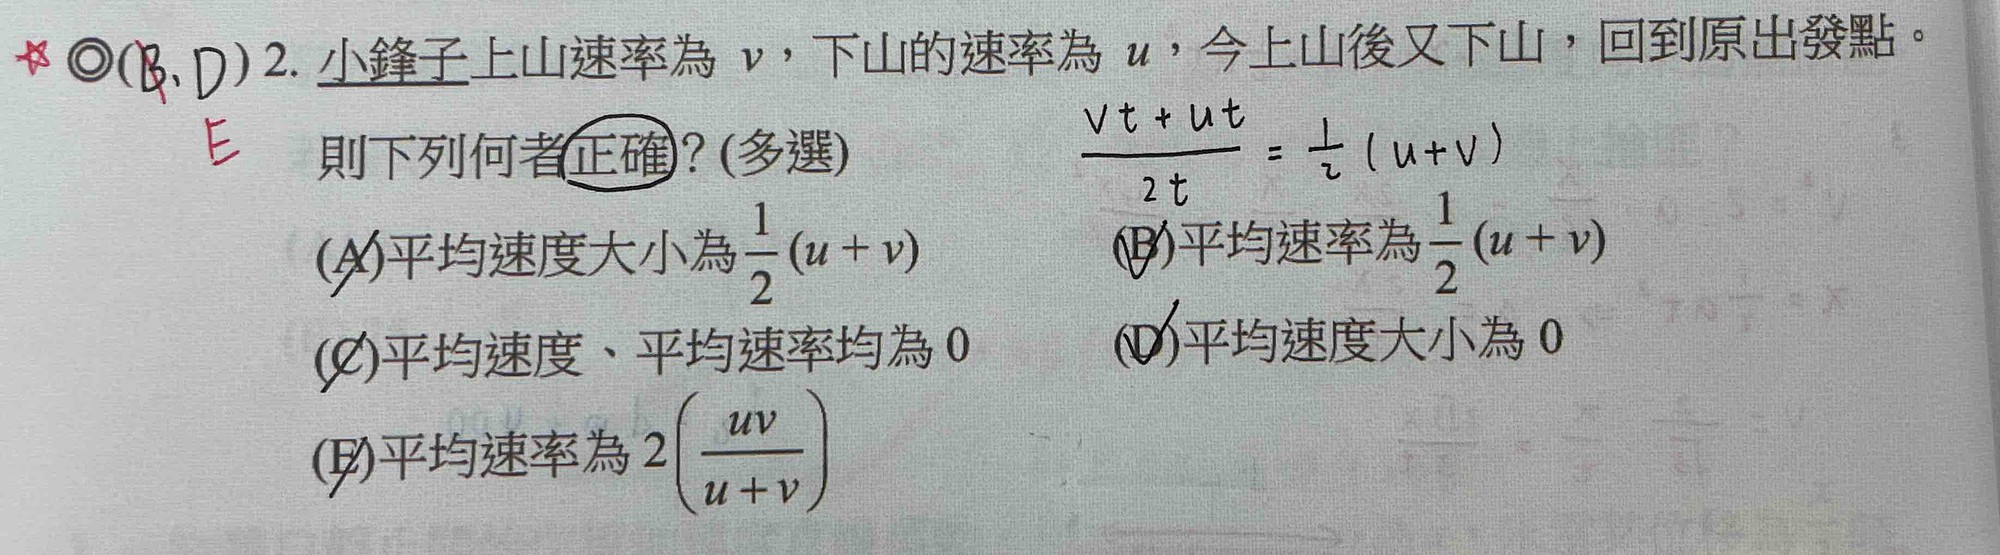 ☆◎(B、D) 2. 小鋒子上山速率為 v，下山的速率為 u，今上山後又下山，回到原出發點。
E 則下列何者正確？(多選) (vt + ut)/(2t) = 1/2 (u+v)
(A)平均速度大小為 1/2 (u + v) (B)平均速率為 1/2 (u + v)
(C)平均速度、平均速率均為 0 (D)平均速度大小為 0
(E)平均速率為 2(uv/(u + v))